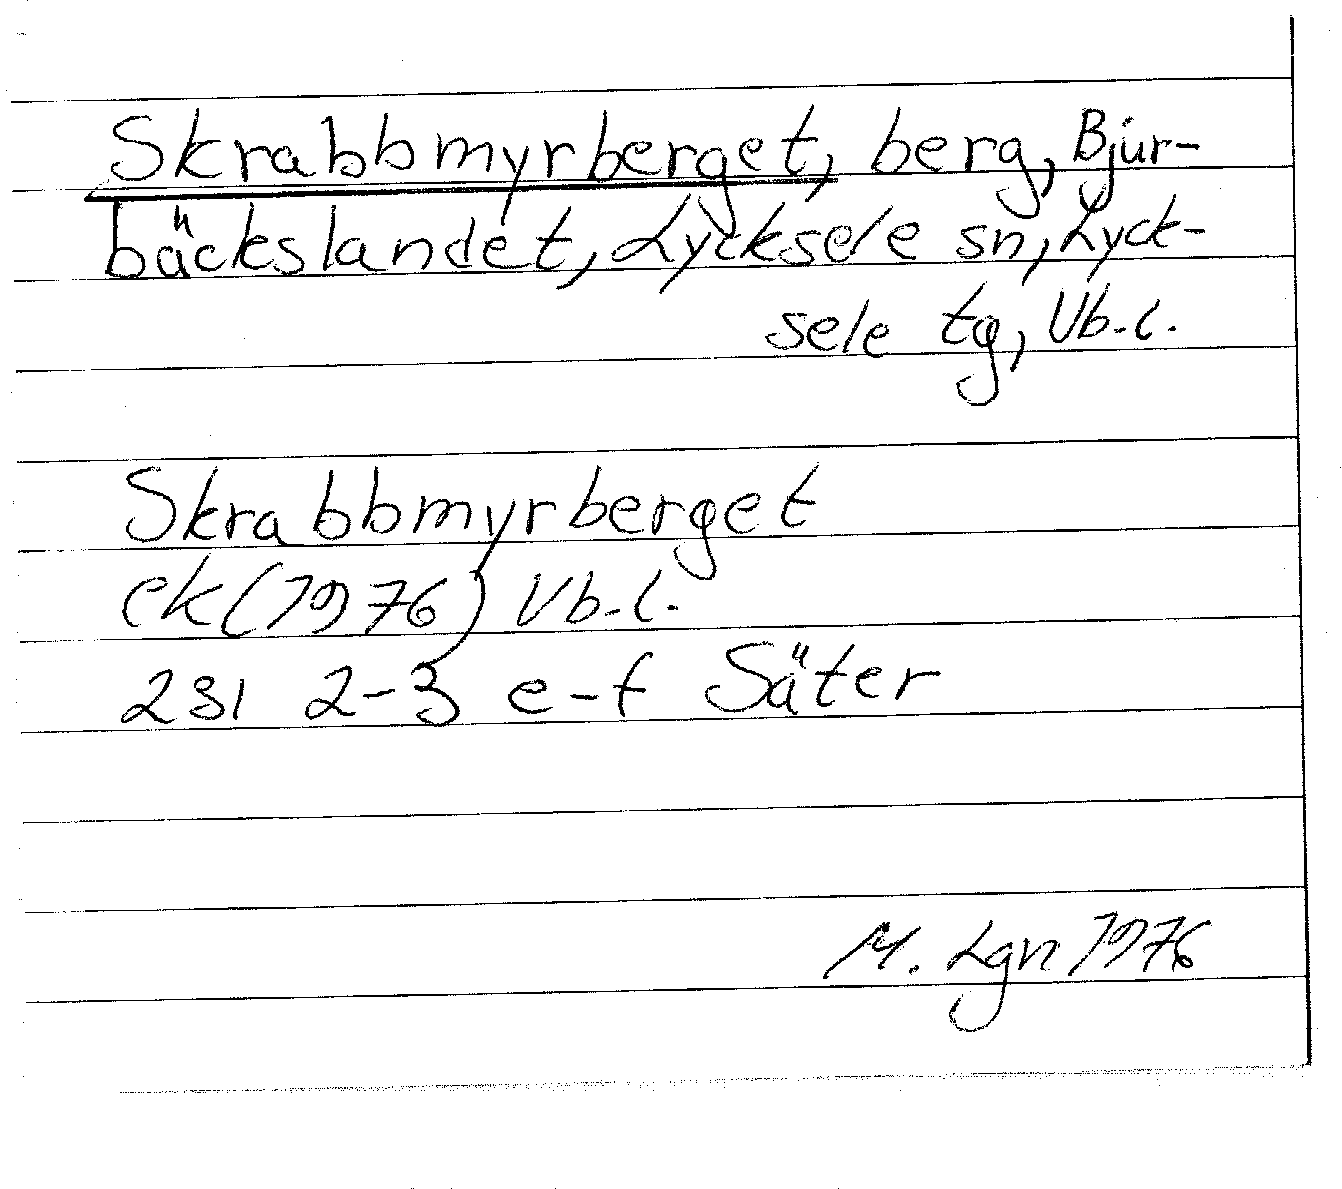 Skrabbmyrberget, berg, Bjur-
bäckslandet, Lycksele sn, Lyck-
sele tg, Vb.l.
Skrabbmyrberget
ek (1976) Vb.l.
231 2-3 e-f Säter
M. Lgn 1976